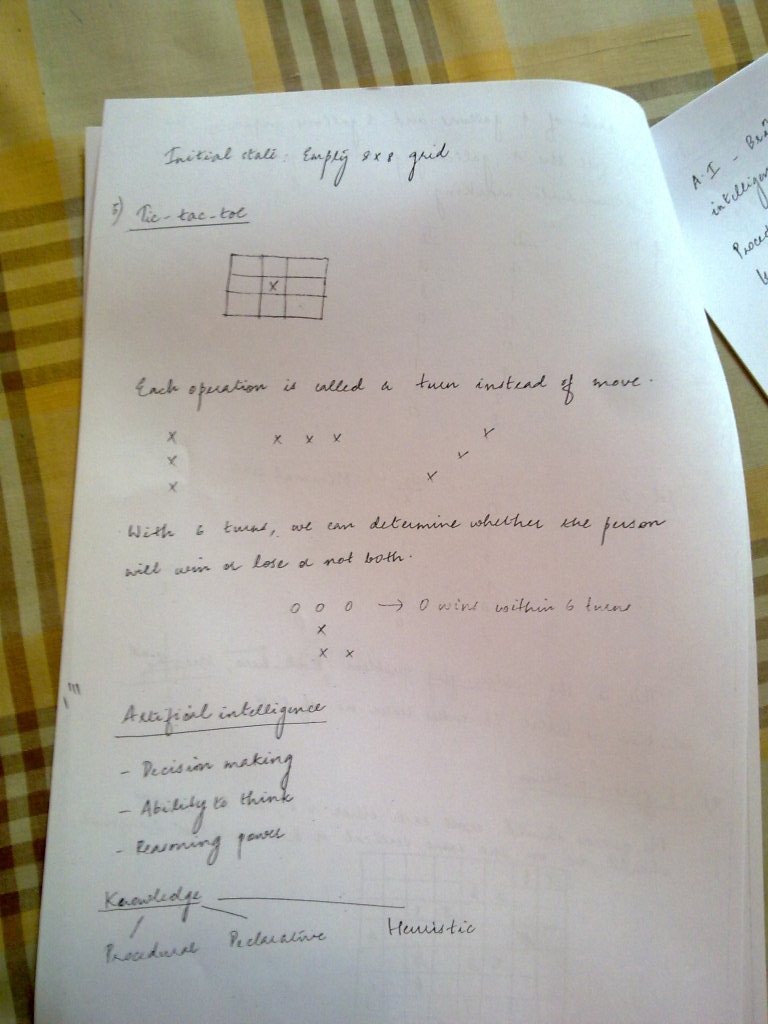 Initial state : Empty 8x8 grid
5) Tic-tac-toe
x
Each operation is called a turn instead of move.
x x x x x
x x
x x
With 6 turns, we can determine whether the person
will win or lose or not both.
0 0 0 → 0 wins within 6 turns
x
x x
Artificial intelligence
- Decision making
- Ability to think
- Reasoning power
Knowledge
Procedural Declarative Heuristic
A.I -